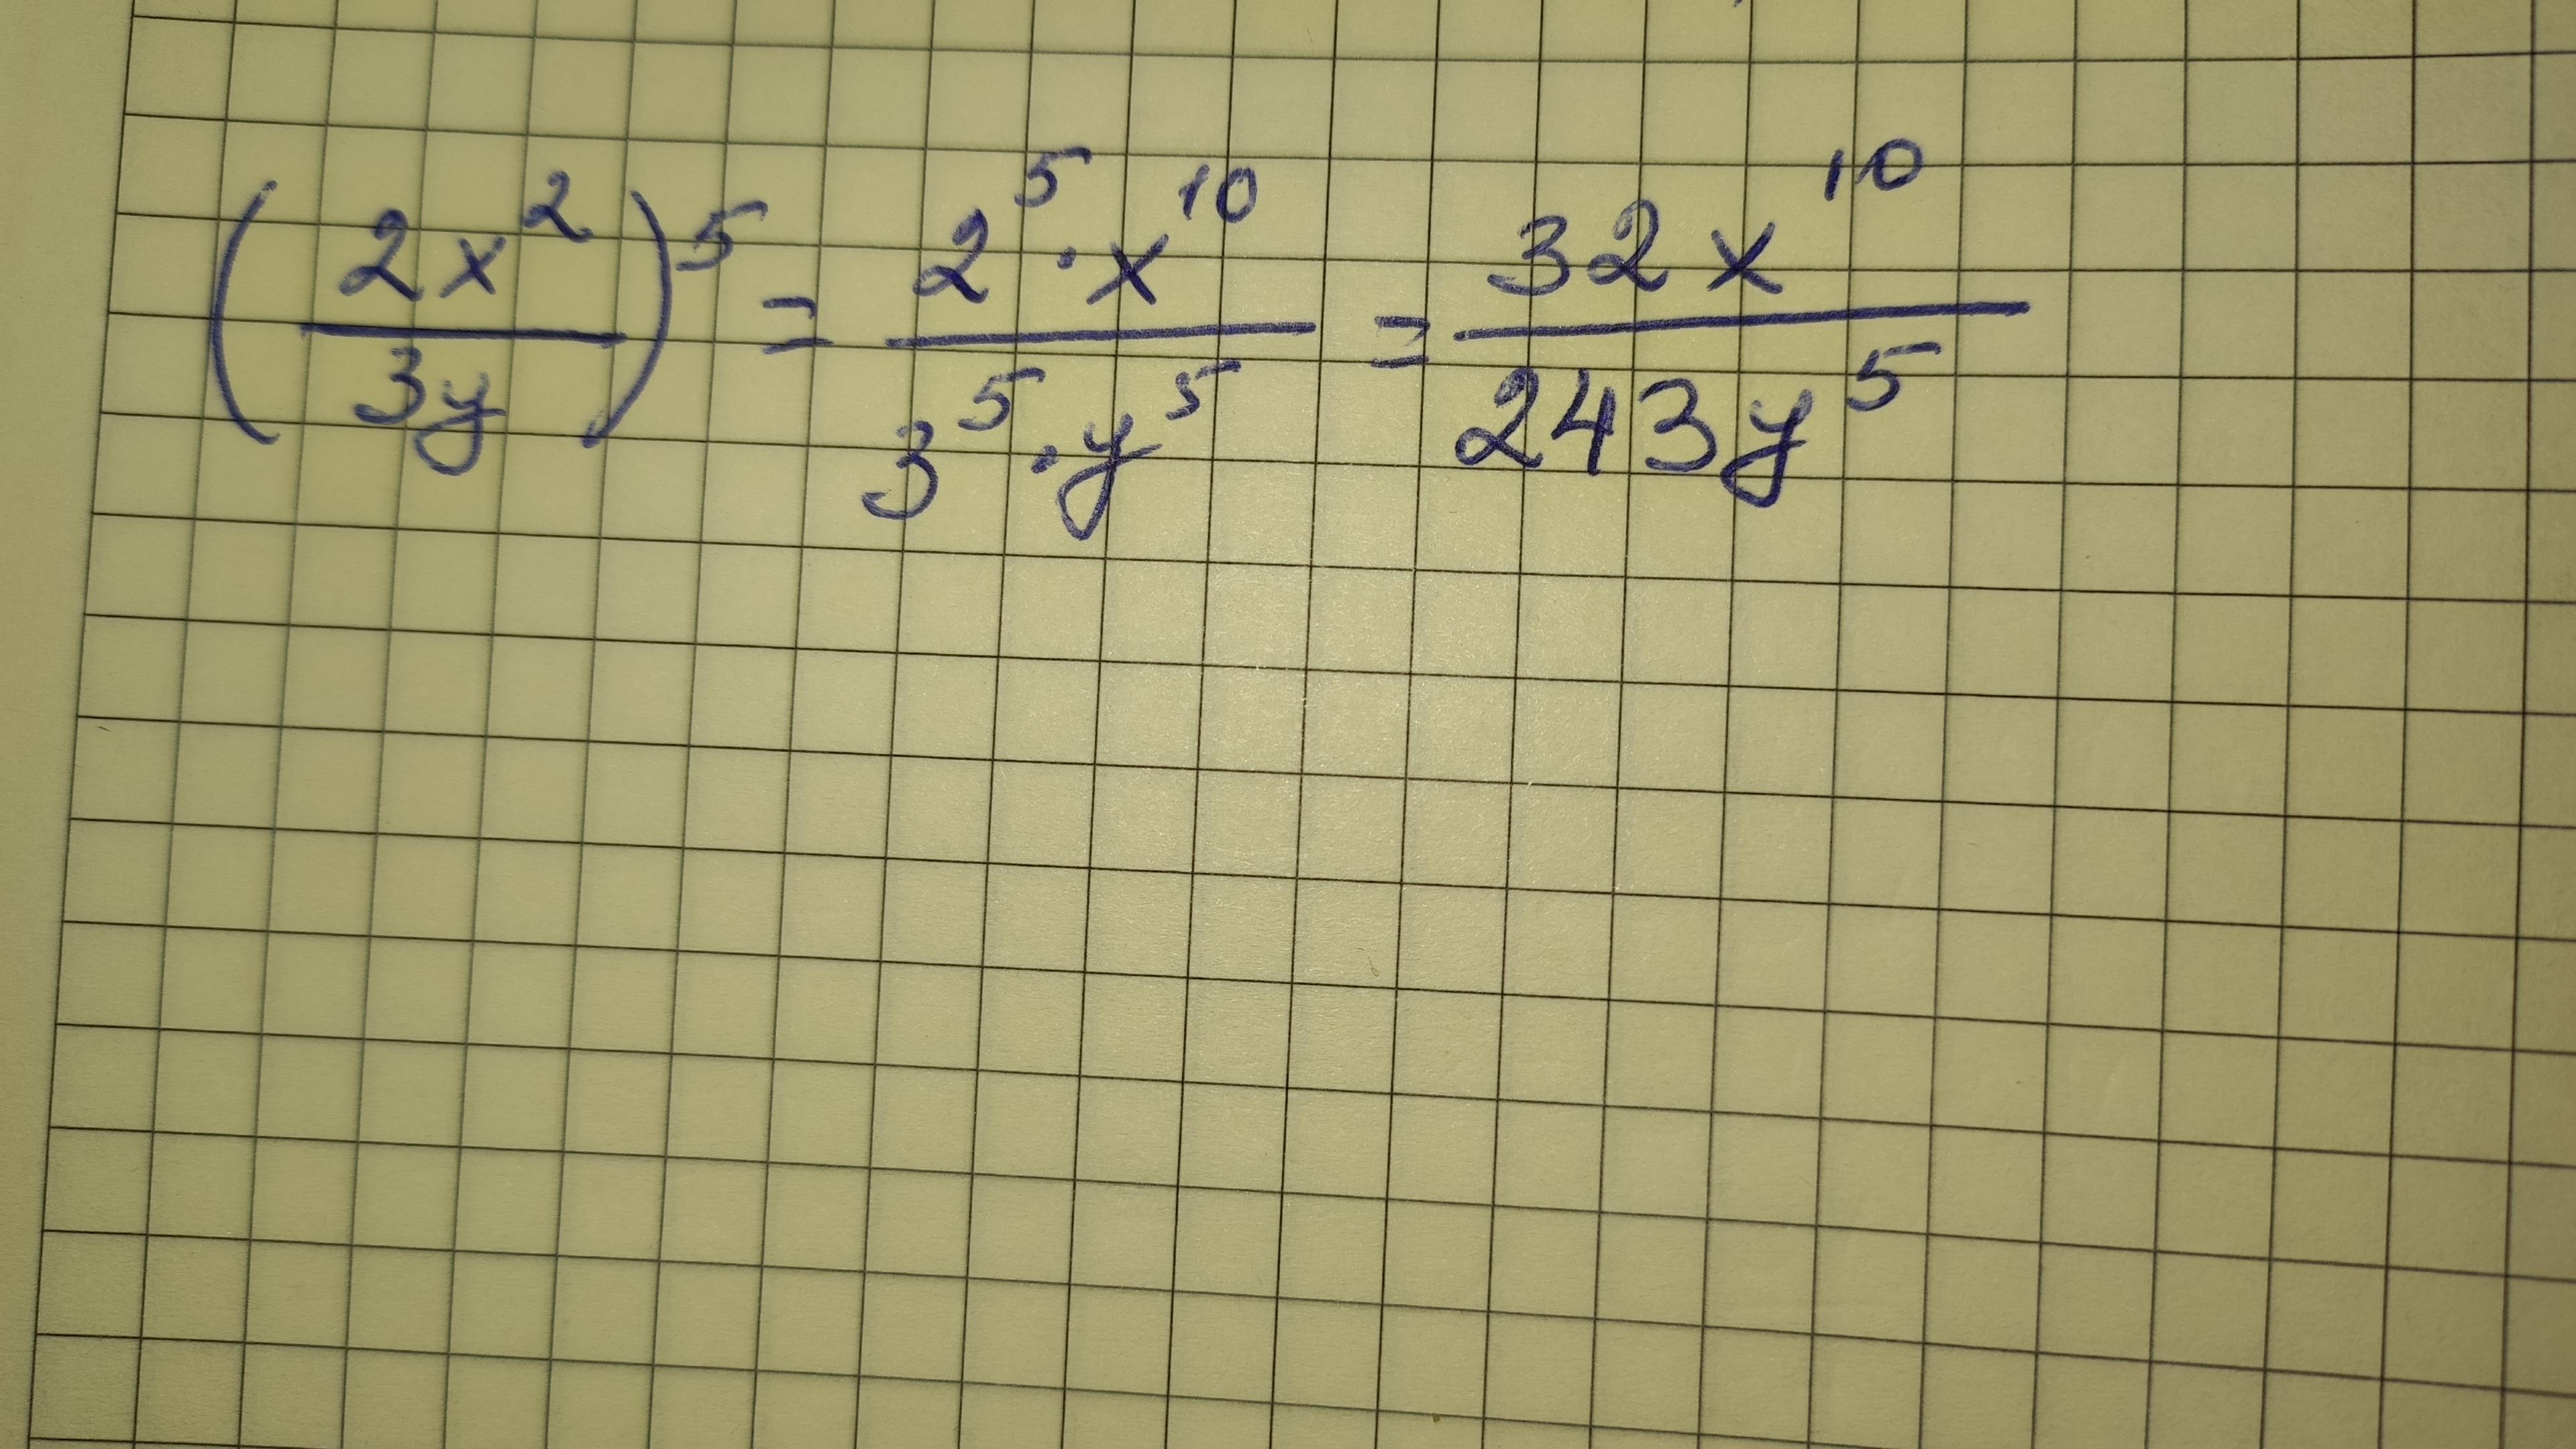 $\left(\frac{2x^2}{3y}\right)^5 = \frac{2^5 \cdot x^{10}}{3^5 \cdot y^5} = \frac{32x^{10}}{243y^5}$